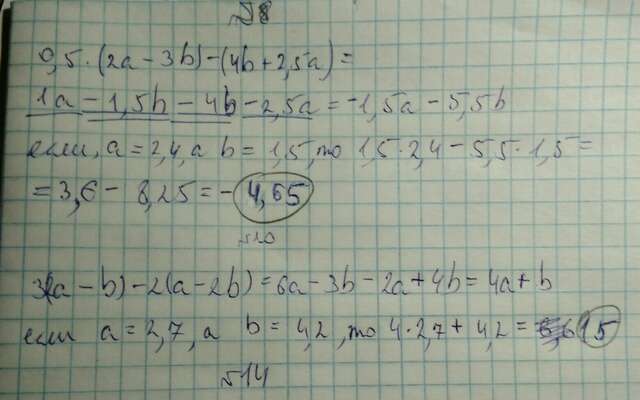 №8
0,5·(2a-3b)-(4b+2,5a)=
1a-1,5b-4b-2,5a=-1,5a-5,5b
если, a=2,4, а b=1,5, то 1,5·2,4-5,5·1,5=
=3,6-8,25=-4,65
№10
3(2a-b)-2(a-2b)=6a-3b-2a+4b=4a+b
если a=2,7, а b=4,2, то 4·2,7+4,2=15
№14